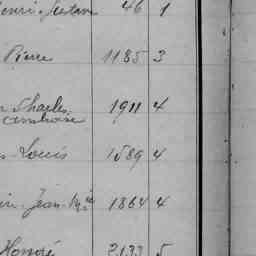 Henri Gustave 46 1
Pierre 1185 3
Charles 1911 4
Ambroise
Louis 1589 4
Jean Mie 1864 4
Honoré 2133 5